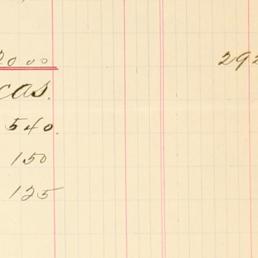 20 00 292
cas.
540.
150
125